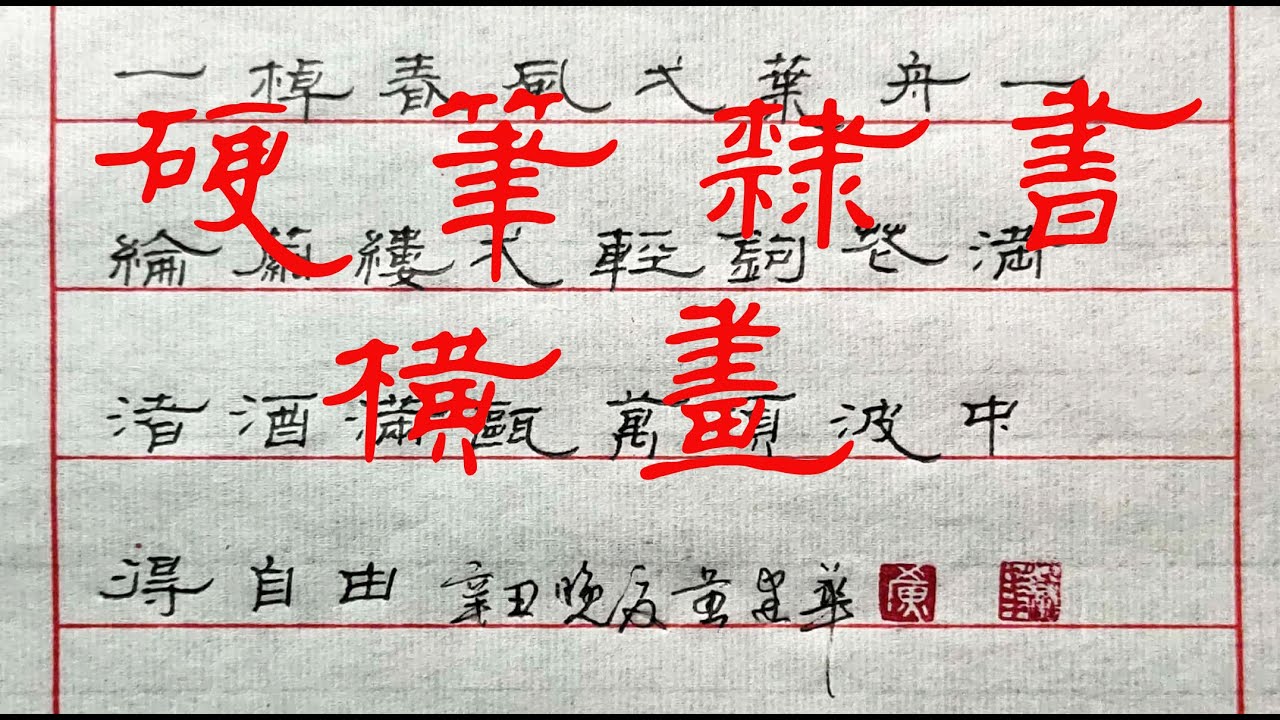 一棹春風弌葉舟一
硬筆隸書
綸繭縷弌輕鉤花滿
橫畫
渚酒滿甌萬頃波中
得自由 辛丑晚夏黄建華